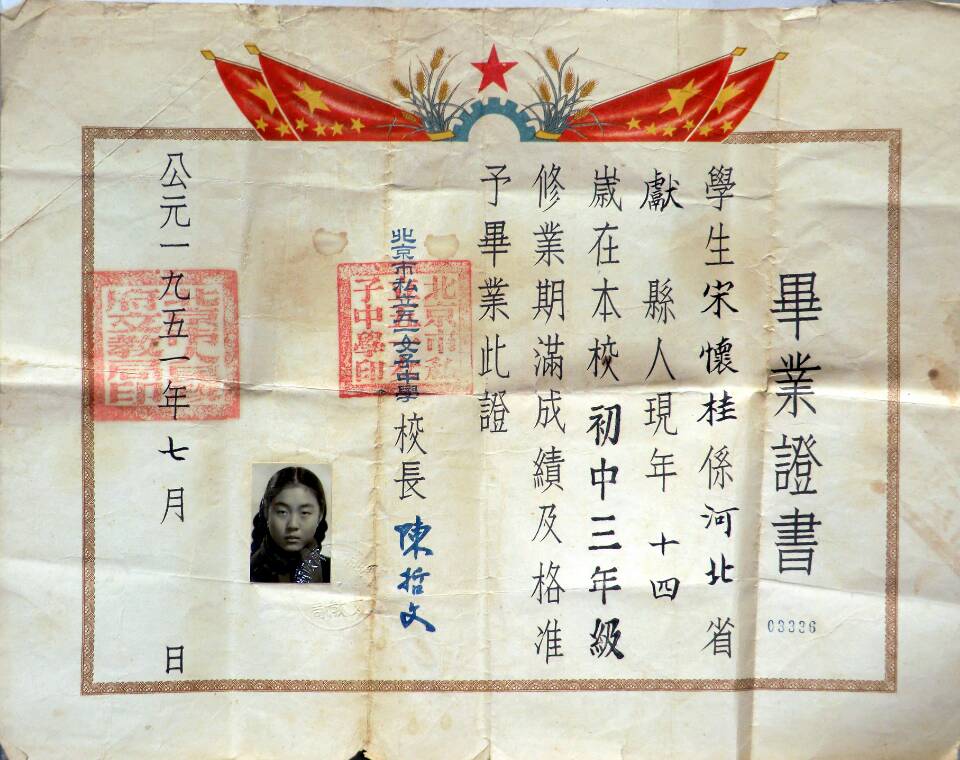 畢業證書
03336
學生宋懷桂係河北省
獻縣人現年十四
歲在本校初中三年級
修業期滿成績及格准
予畢業此證
北京市私立五一女子中學校長陳哲文
公元一九五一年七月 日